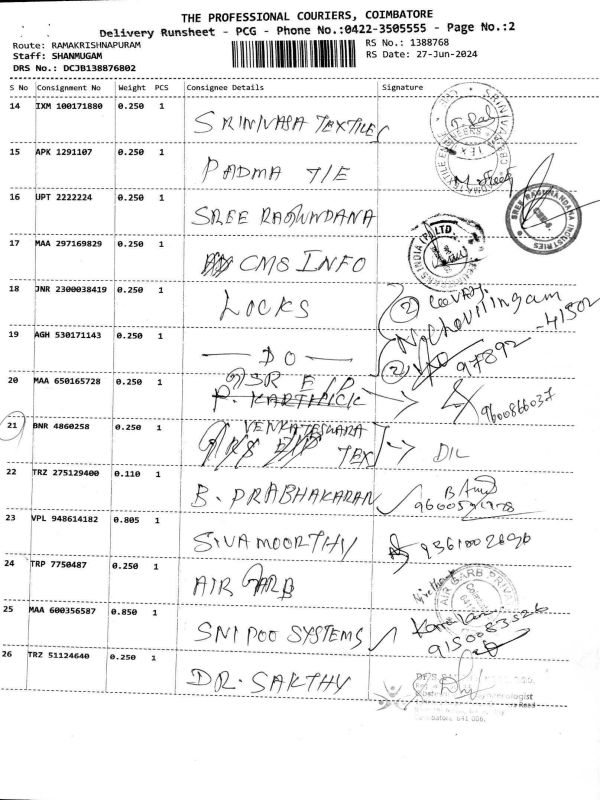 THE PROFESSIONAL COURIERS, COIMBATORE
Delivery Runsheet - PCG - Phone No.:0422-3505555 - Page No.:2
Route: RAMAKRISHNAPURAM RS No.: 1388768
Staff: SHANMUGAM RS Date: 27-Jun-2024
DRS No.: DCJB138876802
S No Consignment No Weight PCS Consignee Details Signature
14 IXM 100171880 0.250 1 SRINIVASA TEXTILES
15 APK 1291107 0.250 1 PADMA T/E
16 UPT 2222224 0.250 1 SREE RAGUNDANA
SREE RAGHUNANDANA INDUSTRIES
17 MAA 297169829 0.250 1 CMS INFO
18 JNR 2300038419 0.250 1 LOCKS 2
19 AGH 530171143 0.250 1 DO 2 97892-41502
20 MAA 650165728 0.250 1 P. KARTHICK 9600866037
21 BNR 4860258 0.250 1 VENKATESWARA TEX DIL
22 TRZ 275129400 0.110 1 B. PRABHAKARAN
23 VPL 948614182 0.805 1 SIVAMOORTHY 9361002696
24 TRP 7750487 0.250 1 AIR GARB
25 MAA 600356587 0.850 1 SNIPOO SYSTEMS 9150083526
26 TRZ 51124640 0.250 1 DR. SAKTHY
Coimbatore 641 006.